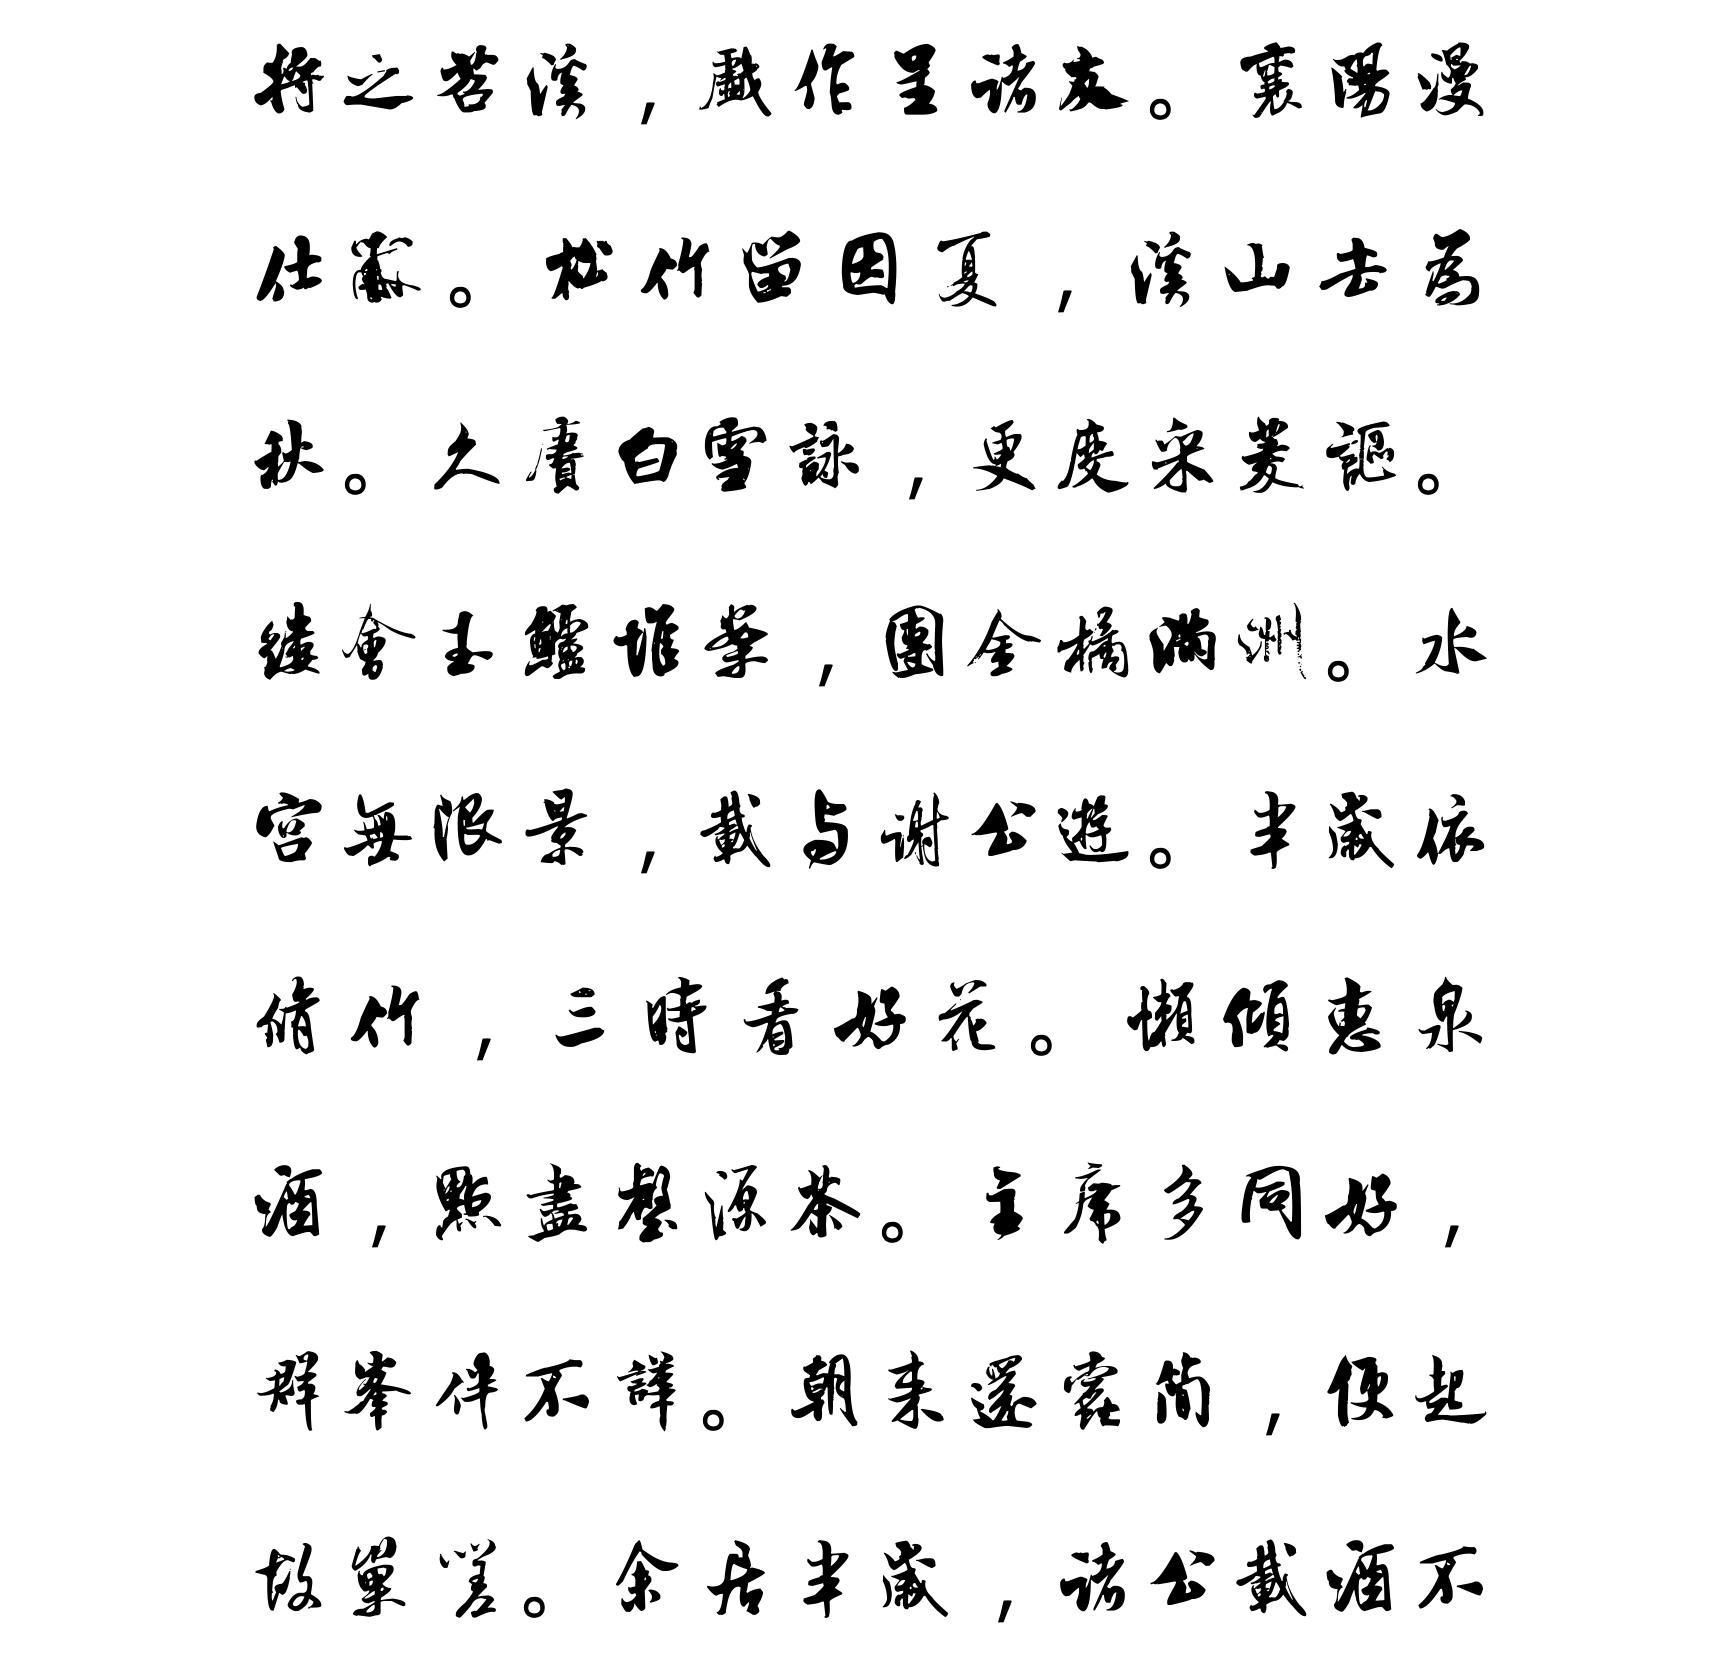 將之苕溪，戲作呈諸友。襄陽漫
仕黻。松竹留因夏，溪山去為
秋。久賡白雪詠，更度采菱謳。
縷會玉鱸堆案，團金橘滿洲。水
宮無限景，載与谢公遊。半歲依
脩竹，三時看好花。懶傾惠泉
酒，點盡壑源茶。主席多同好，
群峯伴不譁。朝来還蠹簡，便起
故巢嗟。余居半歲，諸公載酒不